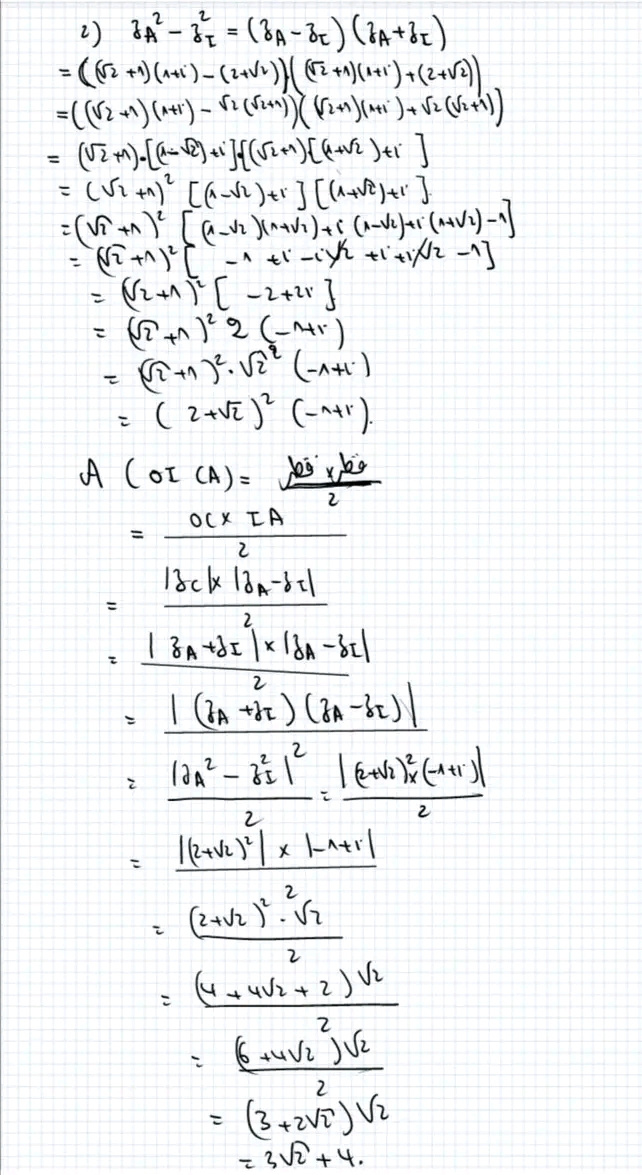 2) zA² - zI² = (zA - zI)(zA + zI)
= ((√2+1)(1+i) - (2+√2))((√2+1)(1+i) + (2+√2))
= ((√2+1)(1+i) - √2(√2+1))((√2+1)(1+i) + √2(√2+1))
= (√2+1)·[(1-√2)+i]·(√2+1)[(1+√2)+i]
= (√2+1)² [(1-√2)+i][(1+√2)+i]
= (√2+1)² [(1-√2)(1+√2)+i(1-√2)+i(1+√2)-1]
= (√2+1)² [-1+i-i√2+i+i√2-1]
= (√2+1)² [-2+2i]
= (√2+1)² 2(-1+i)
= (√2+1)²·√2²(-1+i)
= (2+√2)² (-1+i).
A(OICA) = قطر × قطر / 2
= OC × IA / 2
= |zC| × |zA - zI| / 2
= |zA + zI| × |zA - zI| / 2
= |(zA + zI)(zA - zI)| / 2
= |zA² - zI²| / 2 = |(2+√2)² × (-1+i)| / 2
= |(2+√2)²| × |-1+i| / 2
= (2+√2)² · √2 / 2
= (4+4√2+2)√2 / 2
= (6+4√2)√2 / 2
= (3+2√2)√2
= 3√2+4.